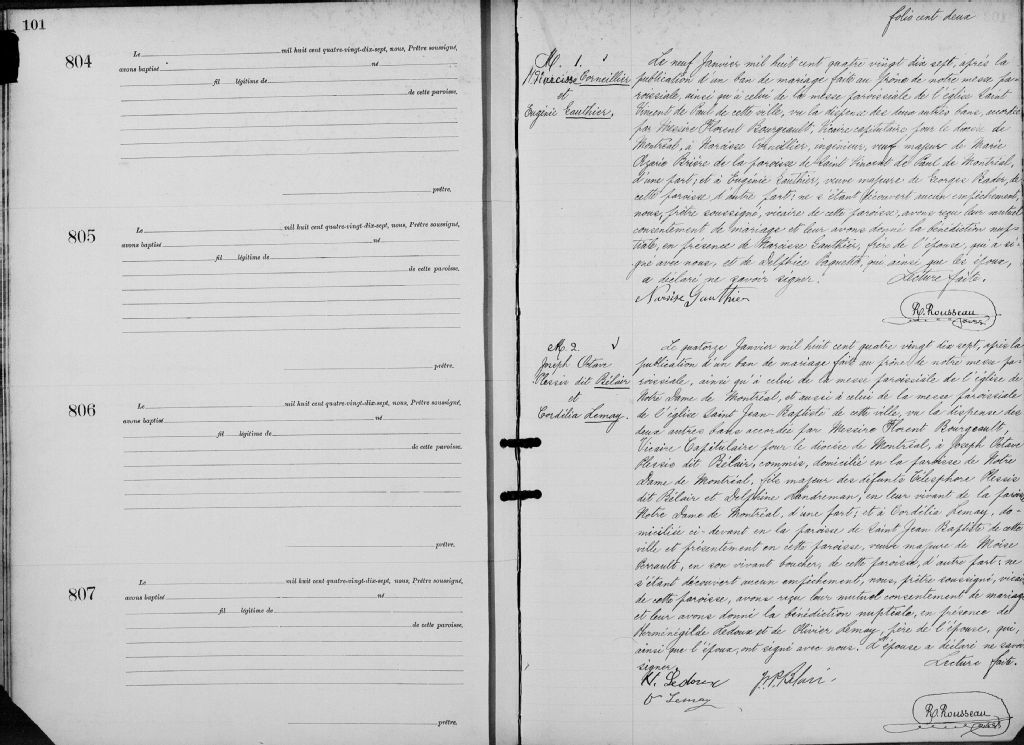 101
804
Le mil huit cent quatre-vingt-dix-sept, nous, Prêtre soussigné,
avons baptisé né
fil légitime de
de cette paroisse.
prêtre.
805
Le mil huit cent quatre-vingt-dix-sept, nous, Prêtre soussigné,
avons baptisé né
fil légitime de
de cette paroisse.
prêtre.
806
Le mil huit cent quatre-vingt-dix-sept, nous, Prêtre soussigné,
avons baptisé né
fil légitime de
de cette paroisse.
prêtre.
807
Le mil huit cent quatre-vingt-dix-sept, nous, Prêtre soussigné,
avons baptisé né
fil légitime de
de cette paroisse.
prêtre.
folio cent deux
M. 1.
Narcisse Corneillier
et
Eugénie Gauthier.
Le neuf Janvier mil huit cent quatre vingt dix sept, après la
publication d'un ban de mariage faite au prône de notre messe pa-
roissiale, ainsi qu'à celui de la messe paroissiale de l'église Saint
Vincent de Paul de cette ville, vu la dispense des deux autres bans, accordée
par Messire Florent Bourgeault, Vicaire capitulaire pour le diocèse de
Montréal, à Narcisse Corneillier, ingénieur, veuf majeur de Marie
Brière de la paroisse de Saint Vincent de Paul de Montréal,
d'une part; et à Eugénie Gauthier, veuve majeure de Georges Bador, de
cette paroisse d'autre part: ne s'étant découvert aucun empêchement,
nous, prêtre soussigné, vicaire de cette paroisse, avons reçu leur mutuel
consentement de mariage et leur avons donné la bénédiction nup-
tiale, en présence de Narcisse Gauthier, frère de l'épouse, qui a si-
gné avec nous, et de Delphice Paquette, qui ainsi que les époux,
a déclaré ne savoir signer. Lecture faite.
Narsise Gauthier
R. Rousseau
M. 2
Joseph Octave
Plessis dit Bélair
et
Cordélia Lemay.
Le quatorze Janvier mil huit cent quatre vingt dix sept, après la
publication d'un ban de mariage fait au prône de notre messe pa-
roissiale, ainsi qu'à celui de la messe paroissiale de l'église de
Notre Dame de Montréal, et aussi à celui de la messe paroissiale
de l'église Saint Jean Baptiste de cette ville, vu la dispense des
deux autres bans accordée par Messire Florent Bourgeault,
Vicaire Capitulaire pour le diocèse de Montréal, à Joseph Octave
Plessis dit Bélair, commis, domicilié en la paroisse de Notre
Dame de Montréal, fils majeur des défunts Télesphore Plessis
dit Bélair et Delphine Landreman, en leur vivant de la paroisse
Notre Dame de Montréal, d'une part; et à Cordélia Lemay, do-
miciliée ci-devant en la paroisse de Saint Jean Baptiste de cette
ville et présentement en cette paroisse, veuve majeure de Moïse
Perrault, en son vivant boucher, de cette paroisse, d'autre part: ne
s'étant découvert aucun empêchement, nous, prêtre soussigné, vicaire
de cette paroisse, avons reçu leur mutuel consentement de mariage
et leur avons donné la bénédiction nuptiale, en présence de
Herménégilde Ledoux et de Olivier Lemay, père de l'épouse, qui,
ainsi que l'époux, ont signé avec nous. L'épouse a déclaré ne savoir
signer. Lecture faite.
H. Ledoux
O Lemay
R. Rousseau